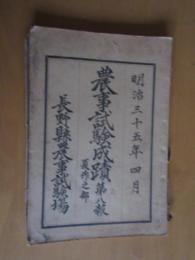 明治三十五年 四月
農事試驗成蹟 第八報
夏作之部
長野縣農事試驗場